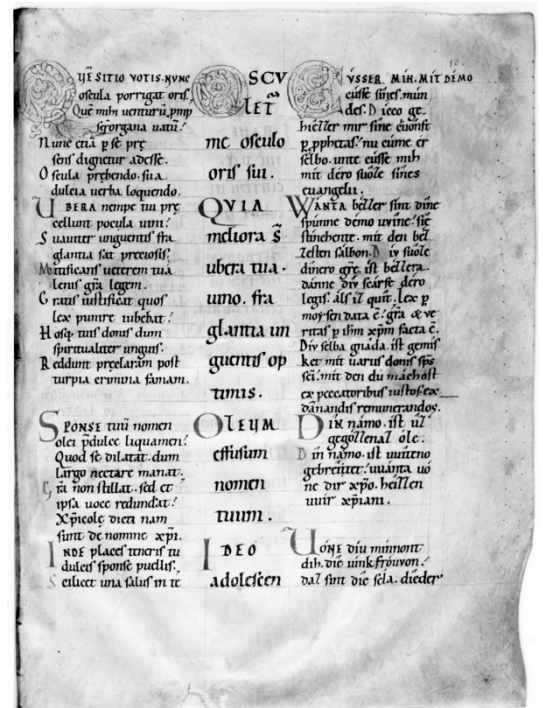 QVE SITIO VOTIS. NVNC
oscula porrigat oris.
Quē mihi venturū. pmp
serorgana vatū.
Nunc etiā p se prę
sens dignetur adesse.
Oscula prębendo. sua
dulcia verba loquendo.
VBERA nempe tui prę
cellunt pocula vini.
Suauiter unguentis fra
glantia sat preciosis.
Mitificans veterem tuā
lenis grā legem.
Gratis iustificat quos
lex punire iubebat.
Hosq; tuis donis dum
spiritualiter unguis.
Reddunt pręclaram post
turpia crimina famam.
SPONSE tuū nomen
olei pdulce liquamen.
Quod se dilatat. dum
largo nectare manat.
Grā non stillat. sed et
ipsa voce redundat.
Xpicolę dicti nam
sunt de nomine xpi.
INDE places teneris tu
dulcis sponse puellis.
Scilicet una salus in te
OSCV
LET
me osculo
oris sui.
QVIA
meliora s̄
ubera tua.
uino. fra
glantia un
guentis op
timis.
OLEVM
effusum
nomen
tuum.
IDEO
adolescen
CVSSER MIH. MIT DEMO
cusse sines. mun
des. Dicco ge
hiezzer mir sine cuonft
p pphetas. nu cume er
selbo. unte cusse mih
mit dero suoze sines
euangelii.
WANTA bezzer sint dine
spunne demo uvine. sie
stinchente. mit den bez
zesten salbon. Div suoze
dinero grę. ist bezzera.
danne div scarfe dero
legis. als iz quit. Lex p
moysen data ē. grā & ve
ritas p ihm xpm facta ē.
Div selba gnada. ist gemis
ket mit uariis donis sps
sci. mit den du machost
ex peccatoribus iustos. ex
damnandis remunerandos.
DIN namo. ist uz
gegozzenaz ole.
Din namo. ist uuiteno
gebreitet. uuanta uo
ne dir xpo. heizzen
uuir xpiani.
VONE diu minnont
dih. die iunkfrouvon.
daz sint die sela. dieder